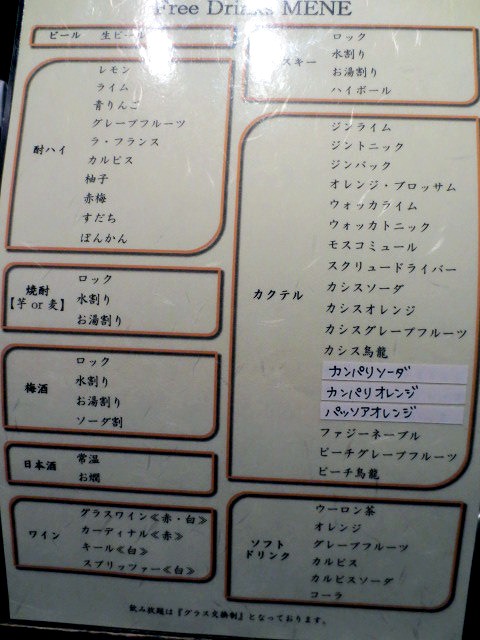 Free Drinks MENE
ビール 生ビール
酎ハイ
レモン
ライム
青りんご
グレープフルーツ
ラ・フランス
カルピス
柚子
赤梅
すだち
ぽんかん
焼酎
【芋 or 麦】
ロック
水割り
お湯割り
梅酒
ロック
水割り
お湯割り
ソーダ割
日本酒
常温
お燗
ワイン
グラスワイン≪赤・白≫
カーディナル≪赤≫
キール≪白≫
スプリッツァー≪白≫
スキー
ロック
水割り
お湯割り
ハイボール
カクテル
ジンライム
ジントニック
ジンバック
オレンジ・ブロッサム
ウォッカライム
ウォッカトニック
モスコミュール
スクリュードライバー
カシスソーダ
カシスオレンジ
カシスグレープフルーツ
カシス烏龍
カンパリソーダ
カンパリオレンジ
パッソアオレンジ
ファジーネーブル
ピーチグレープフルーツ
ピーチ烏龍
ソフト
ドリンク
ウーロン茶
オレンジ
グレープフルーツ
カルピス
カルピスソーダ
コーラ
飲み放題は『グラス交換制』となっております。